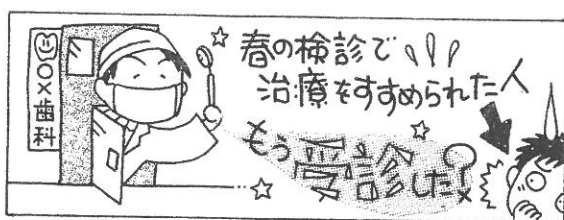 ○×歯科
春の検診で
治療をすすめられた人
もう受診した?